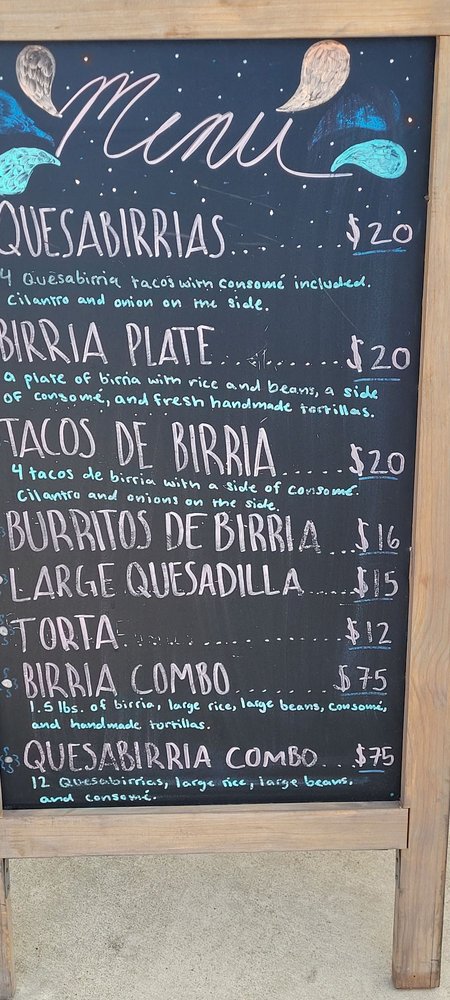 Menu
QUESABIRRIAS........$20
4 Quesabirria tacos with consomé included.
cilantro and onion on the side.
BIRRIA PLATE........$20
a plate of birria with rice and beans, a side
of consomé, and fresh handmade tortillas.
TACOS DE BIRRIA.....$20
4 tacos de birria with a side of consomé.
Cilantro and onions on the side.
BURRITOS DE BIRRIA...$16
LARGE QUESADILLA.....$15
TORTA................$12
BIRRIA COMBO.........$75
1.5 lbs. of birria, large rice, large beans, consomé,
and handmade tortillas.
QUESABIRRIA COMBO...$75
12 Quesabirrias, large rice, large beans,
and consomé.